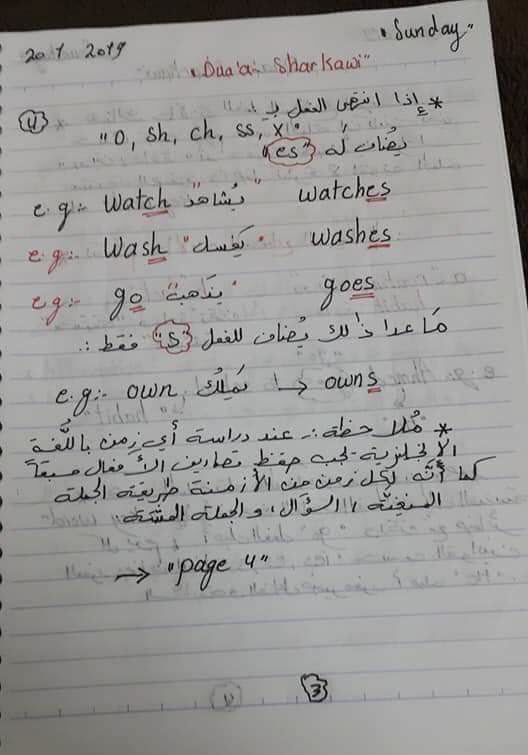 "Sunday"
20.1 2019
"Duu'a- Sharkawi"
④ * إذا انتهى الفعل بـ :
"o, sh, ch, ss, x"
يُضاف له "es"
e.g:- watch "يُشاهد" watches
e.g:- wash "يغسل" washes
e.g:- go "يذهب" goes
ما عدا ذلك يُضاف للفعل "s" فقط :.
e.g:- own يَملِكُ → owns
* مُلاحظة :- عند دراسة أي زمن باللُّغة
الإنجليزية يجب حفظ تصاريف الأفعال مسبقاً
كما أنَّه لكل زمن من الأزمنة طريقة الجملة
المنفيّة ، السؤال ، والجملة المثبتة
→ "page 4"
3